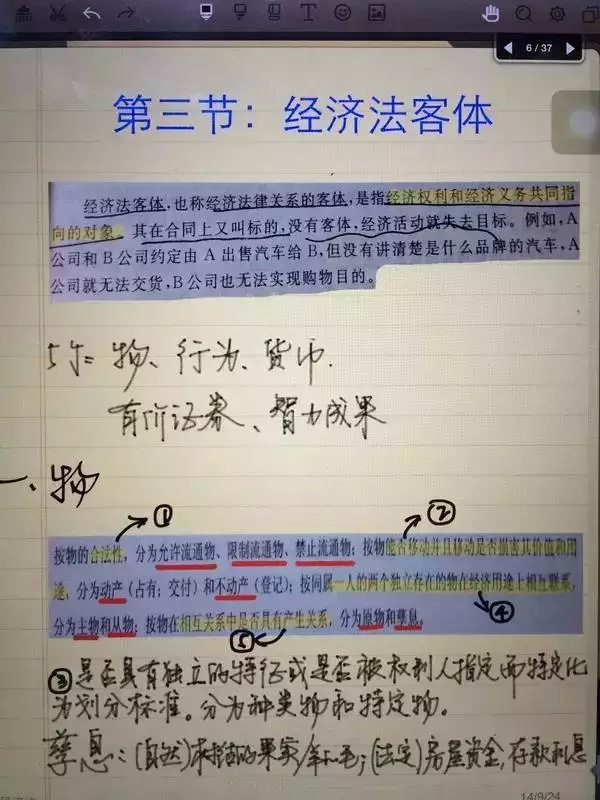 6 / 37
第三节：经济法客体
经济法客体，也称经济法律关系的客体，是指经济权利和经济义务共同指
向的对象。其在合同上又叫标的，没有客体，经济活动就失去目标。例如，A
公司和B公司约定由A出售汽车给B，但没有讲清楚是什么品牌的汽车，A
公司就无法交货，B公司也无法实现购物目的。
5个：物、行为、货币.
有价证券、智力成果
一、物
① ②
按物的合法性，分为允许流通物、限制流通物、禁止流通物；按物能否移动并且移动是否损害其价值和用
途，分为动产（占有；交付）和不动产（登记）；按同属一人的两个独立存在的物在经济用途上相互联系，
④
分为主物和从物；按物在相互关系中是否具有产生关系，分为原物和孳息。
⑤
③是否具有独立的特征或是否被权利人指定而特定化
为划分标准。分为种类物和特定物。
孳息：(自然)树结的果实/羊毛；(法定)房屋资金，存款利息
14/9/24